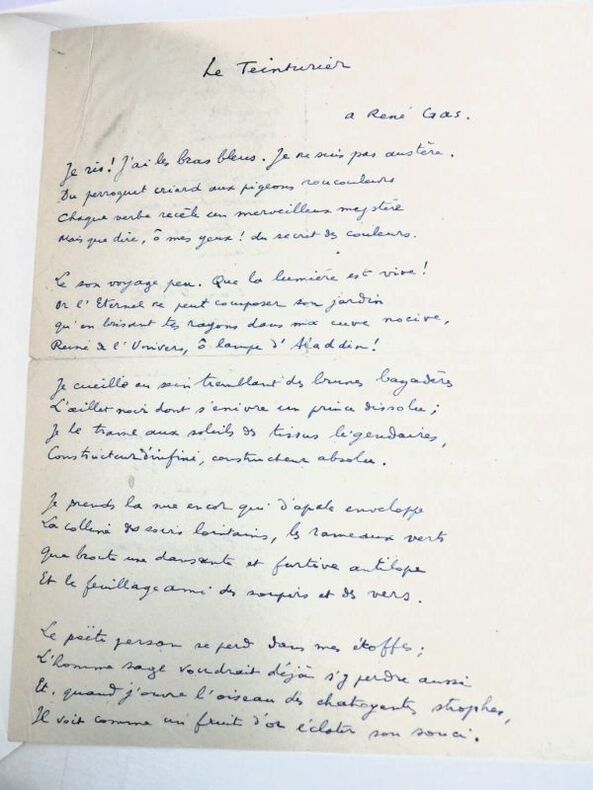 Le Teinturier
a René Gas.
Je ris! J'ai les bras bleus. Je ne suis pas austère.
Du perroquet criard aux pigeons roucouleurs
Chaque verbe recèle un merveilleux mystère
Mais que dire, ô mes yeux! du secret des couleurs.
Le son voyage peu. Que la lumière est vive!
Or l'Eternel ne peut composer son jardin
qu'en brisant tes rayons dans ma cuve nocive,
Reine de l'Univers, ô lampe d'Aladdin!
Je cueille au sein tremblant des brunes bayadères
L'œillet noir dont s'enivre un prince dissolu;
Je le trame aux soleils des tissus légendaires,
Constructeur d'infini, constructeur absolu.
Je prends la nue encor qui d'opale enveloppe
La colline des soirs lointains, les rameaux verts
que broute une dansante et furtive antilope
Et le feuillage ami des soupirs et des vers.
Le poëte persan se perd dans mes étoffes;
L'homme sage voudrait déjà s'y perdre aussi
Et, quand j'ouvre l'oiseau des chatoyantes strophes,
Il voit comme un fruit d'or éclater son souci.